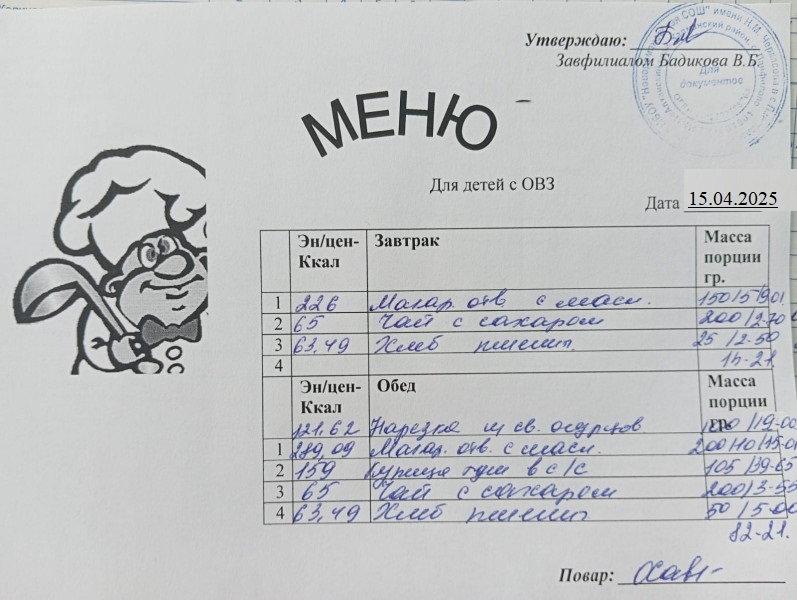 Утверждаю:
Завфилиалом Бадикова В.Б.
Для документов
МЕНЮ
Для детей с ОВЗ
Дата 15.04.2025
Эн/цен-Ккал Завтрак Масса порции гр.
1 226 Макар. отв с масл. 150/5/9.01
2 65 Чай с сахаром 200/2-70
3 63,49 Хлеб пшенич. 25/2-50
4 14-21
Эн/цен-Ккал Обед Масса порции гр.
121,62 Нарезка из св. огурцов 100/19-00
1 289,09 Макар. отв. с масл. 200/10/15-01
2 159 Курица туш в с/с 105/39-65
3 65 Чай с сахаром 200/3-55
4 63,49 Хлеб пшенич 50/5-00
82-21.
Повар: